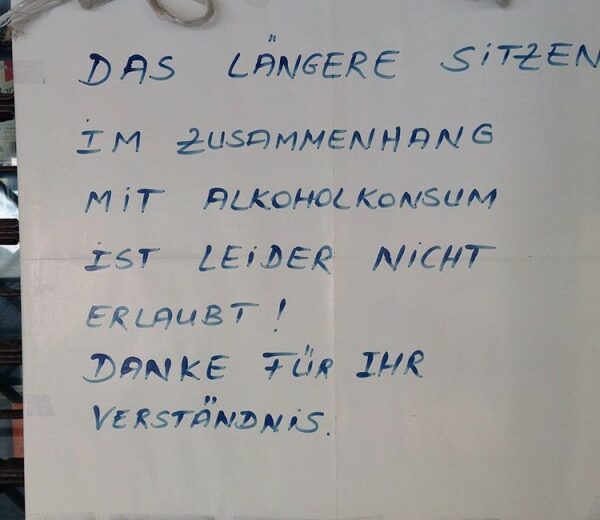 DAS LÄNGERE SITZEN
IM ZUSAMMENHANG
MIT ALKOHOLKONSUM
IST LEIDER NICHT
ERLAUBT!
DANKE FÜR IHR
VERSTÄNDNIS.